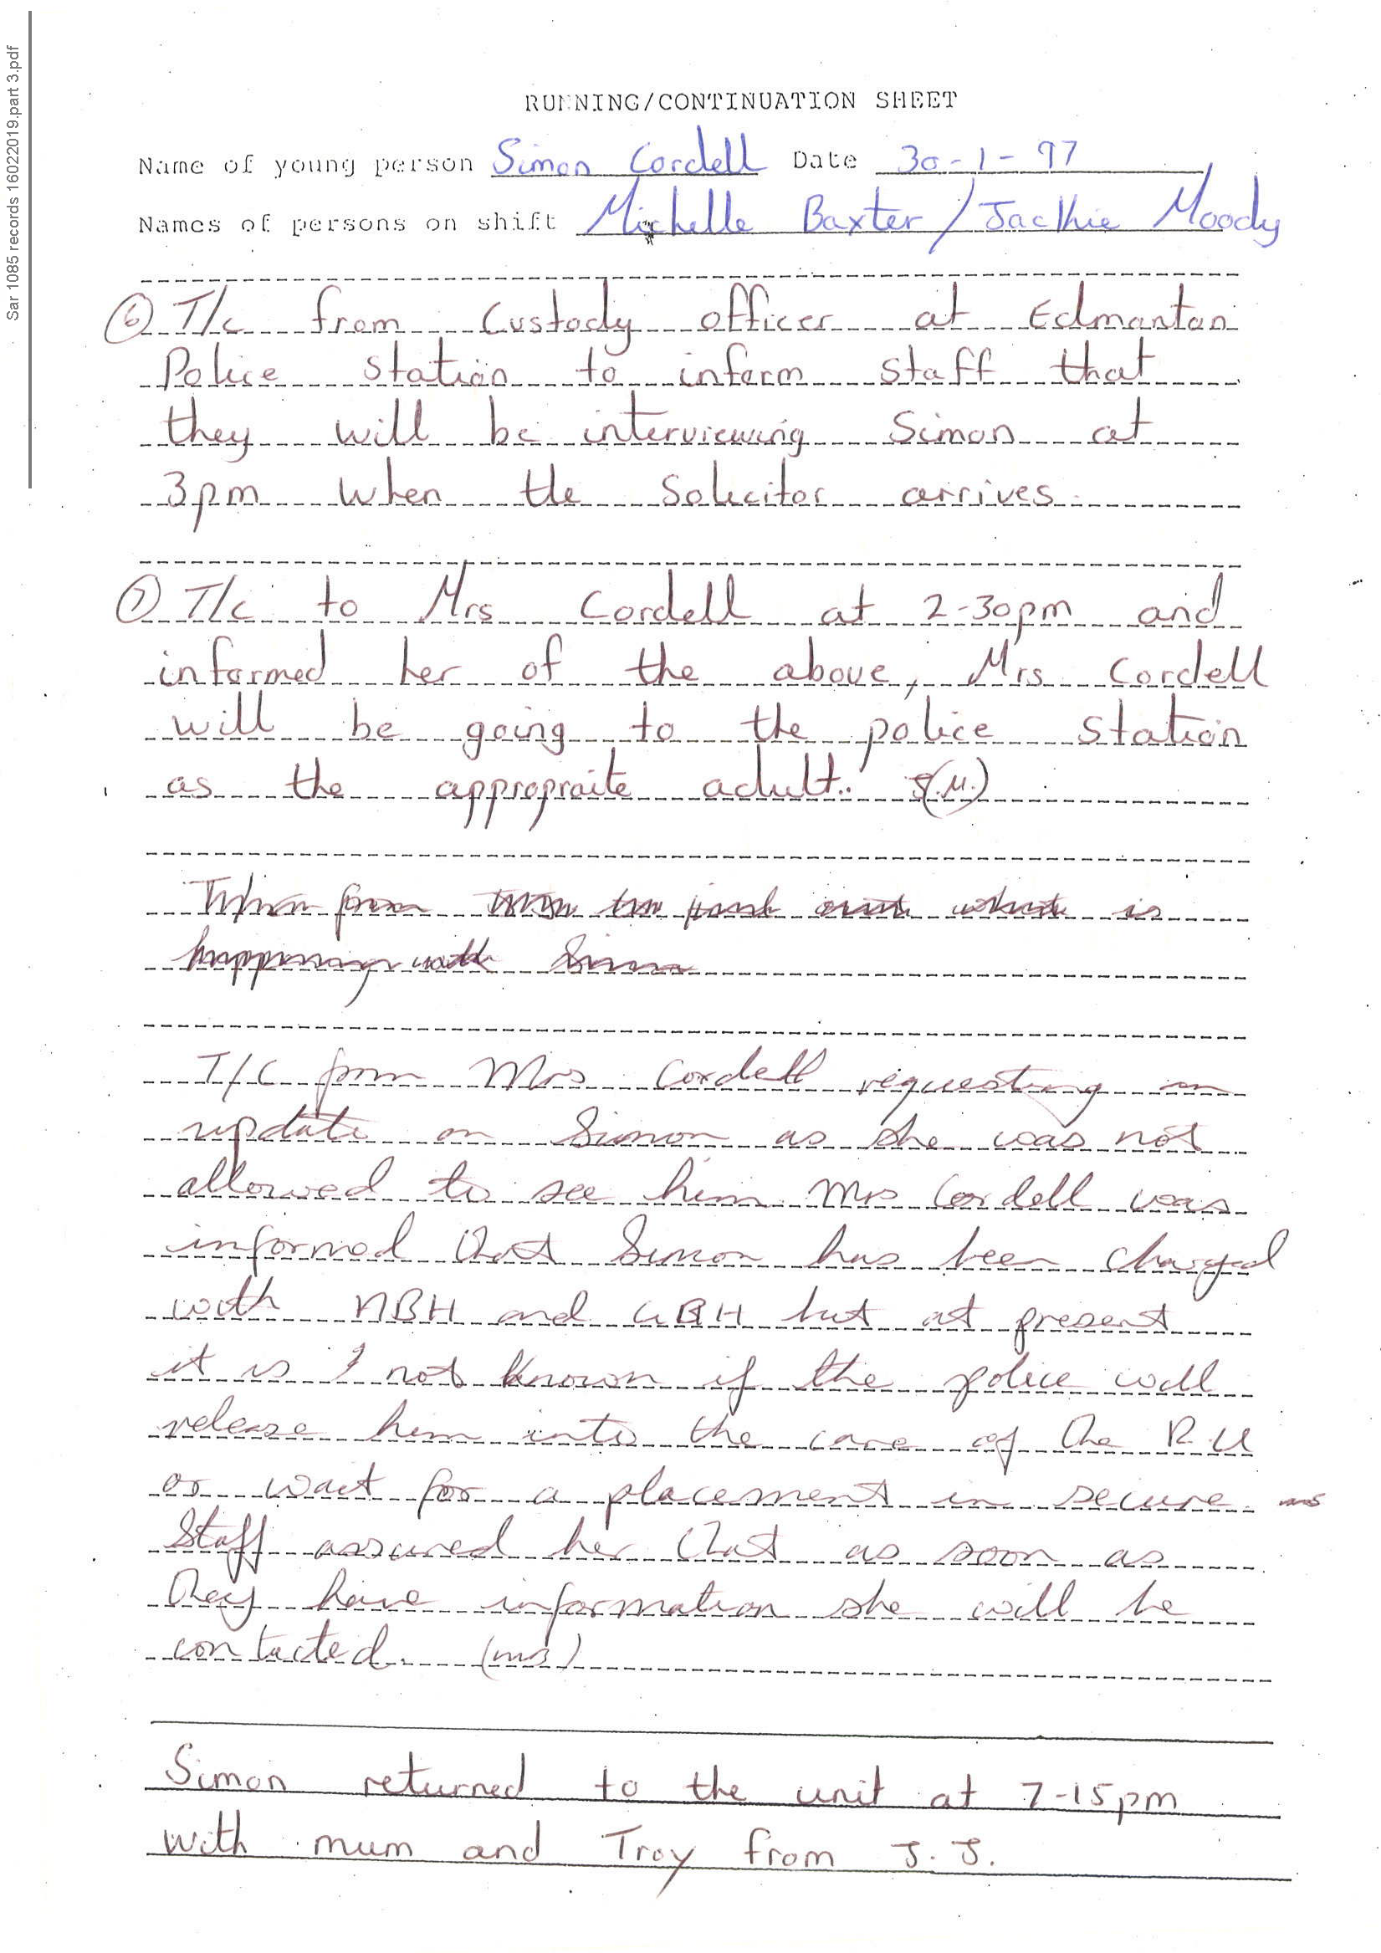 Sar 1085 records 16022019.part 3.pdf
RUNNING/CONTINUATION SHEET
Name of young person Simon Cordell Date 30-1-97
Names of persons on shift Michelle Baxter / Jackie Moody
⑥ T/c from Custody officer at Edmantan
Police station to inform staff that
they will be interviewing Simon at
3pm when the Solicitor arrives.
⑦ T/c to Mrs Cordell at 2-30pm and
informed her of the above, Mrs Cordell
will be going to the police station
as the appropraite adult. (J.M.)
from to find out what is
happening with Simon
T/C from Mrs Cordell requesting an
update on Simon as she was not
allowed to see him Mrs Cordell was
informed that Simon has been charged
with ABH and GBH but at present
it is not known if the police will
release him into the care of the R.U
or wait for a placement in secure.
Staff assured her that as soon as
they have information she will be
contacted. (MB)
Simon returned to the unit at 7-15pm
with mum and Troy from J.J.